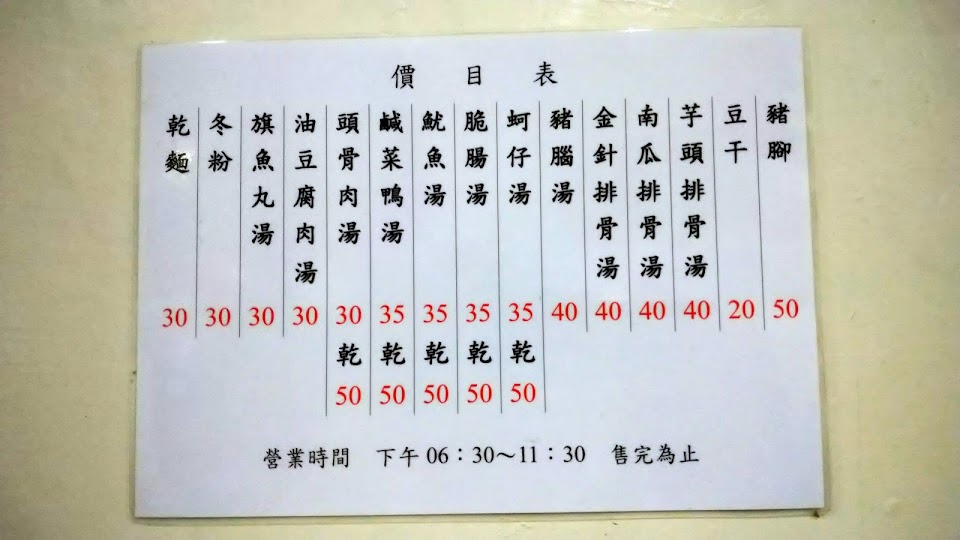 價目表
乾麵 30
冬粉 30
旗魚丸湯 30
油豆腐肉湯 30
頭骨肉湯 30 乾 50
鹹菜鴨湯 35 乾 50
魷魚湯 35 乾 50
脆腸湯 35 乾 50
蚵仔湯 35 乾 50
豬腦湯 40
金針排骨湯 40
南瓜排骨湯 40
芋頭排骨湯 40
豆干 20
豬腳 50
營業時間 下午 06：30～11：30 售完為止